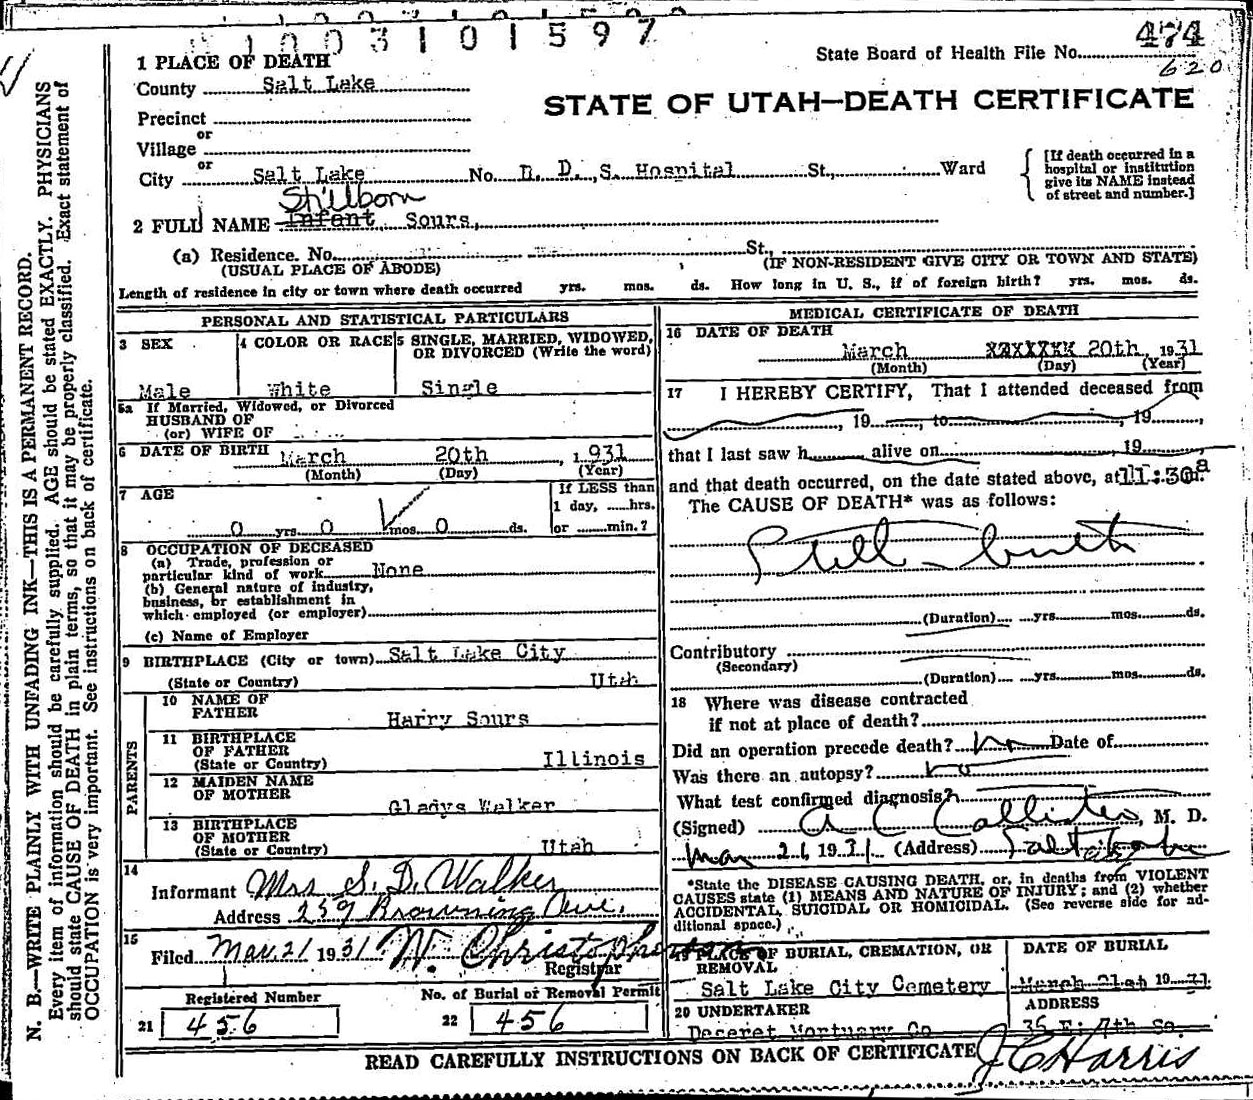 1003101597
474
State Board of Health File No.
620
1 PLACE OF DEATH
County Salt Lake
STATE OF UTAH—DEATH CERTIFICATE
Precinct
or
Village
or
City Salt Lake No. L. D. S. Hospital St., Ward
[If death occurred in a
hospital or institution
give its NAME instead
of street and number.]
Stillborn
2 FULL NAME Infant Sours,
(a) Residence. No. St.,
(USUAL PLACE OF ABODE) (IF NON-RESIDENT GIVE CITY OR TOWN AND STATE)
Length of residence in city or town where death occurred yrs. mos. ds. How long in U. S., if of foreign birth? yrs. mos. ds.
PERSONAL AND STATISTICAL PARTICULARS
3 SEX
Male
4 COLOR OR RACE
White
5 SINGLE, MARRIED, WIDOWED,
OR DIVORCED (Write the word)
Single
5a If Married, Widowed, or Divorced
HUSBAND OF
(or) WIFE OF
6 DATE OF BIRTH March 20th, 1931
(Month) (Day) (Year)
7 AGE
0 yrs. 0 mos. 0 ds.
If LESS than
1 day, ......hrs.
or ........min.?
8 OCCUPATION OF DECEASED
(a) Trade, profession or
particular kind of work None
(b) General nature of industry,
business, or establishment in
which employed (or employer)
(c) Name of Employer
9 BIRTHPLACE (City or town) Salt Lake City
(State or Country) Utah
PARENTS
10 NAME OF
FATHER Harry Sours
11 BIRTHPLACE
OF FATHER
(State or Country) Illinois
12 MAIDEN NAME
OF MOTHER Gladys Walker
13 BIRTHPLACE
OF MOTHER
(State or Country) Utah
14
Informant Mrs S. D. Walker
Address 259 Browning Ave.
15
Filed Mar. 21 1931 W. Christopherson
Registrar
Registered Number
21 456
No. of Burial or Removal Permit
22 456
MEDICAL CERTIFICATE OF DEATH
16 DATE OF DEATH
March XXXXXXX 20th, 1931
(Month) (Day) (Year)
17 I HEREBY CERTIFY, That I attended deceased from
, 19 , to , 19 ,
that I last saw h alive on , 19
and that death occurred, on the date stated above, at 11:30 a m.
The CAUSE OF DEATH* was as follows:
Still-birth
(Duration) yrs. mos. ds.
Contributory
(Secondary)
(Duration) yrs. mos. ds.
18 Where was disease contracted
if not at place of death?
Did an operation precede death? no Date of
Was there an autopsy? no
What test confirmed diagnosis?
(Signed) A C Callister, M. D.
Mar 21, 1931 (Address)
*State the DISEASE CAUSING DEATH, or, in deaths from VIOLENT
CAUSES state (1) MEANS AND NATURE OF INJURY; and (2) whether
ACCIDENTAL, SUICIDAL OR HOMICIDAL. (See reverse side for ad-
ditional space.)
19 PLACE OF BURIAL, CREMATION, OR
REMOVAL
Salt Lake City Cemetery
DATE OF BURIAL
March 21st 1931
20 UNDERTAKER
Deseret Mortuary Co
ADDRESS
36 E. 7th So.
READ CAREFULLY INSTRUCTIONS ON BACK OF CERTIFICATE
J C Harris
N. B.—WRITE PLAINLY WITH UNFADING INK—THIS IS A PERMANENT RECORD.
Every item of information should be carefully supplied. AGE should be stated EXACTLY. PHYSICIANS
should state CAUSE OF DEATH in plain terms, so that it may be properly classified. Exact statement of
OCCUPATION is very important. See instructions on back of certificate.